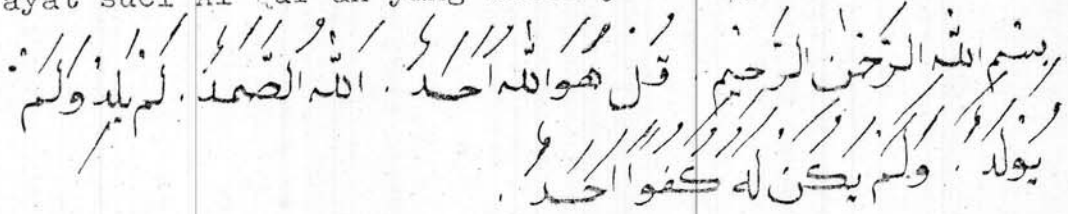 ayat suci Al Qur'an yang
بسم الله الرحمن الرحيم . قل هو الله احد . الله الصمد . لم يلد ولم
يولد . ولم يكن له كفوا احد .